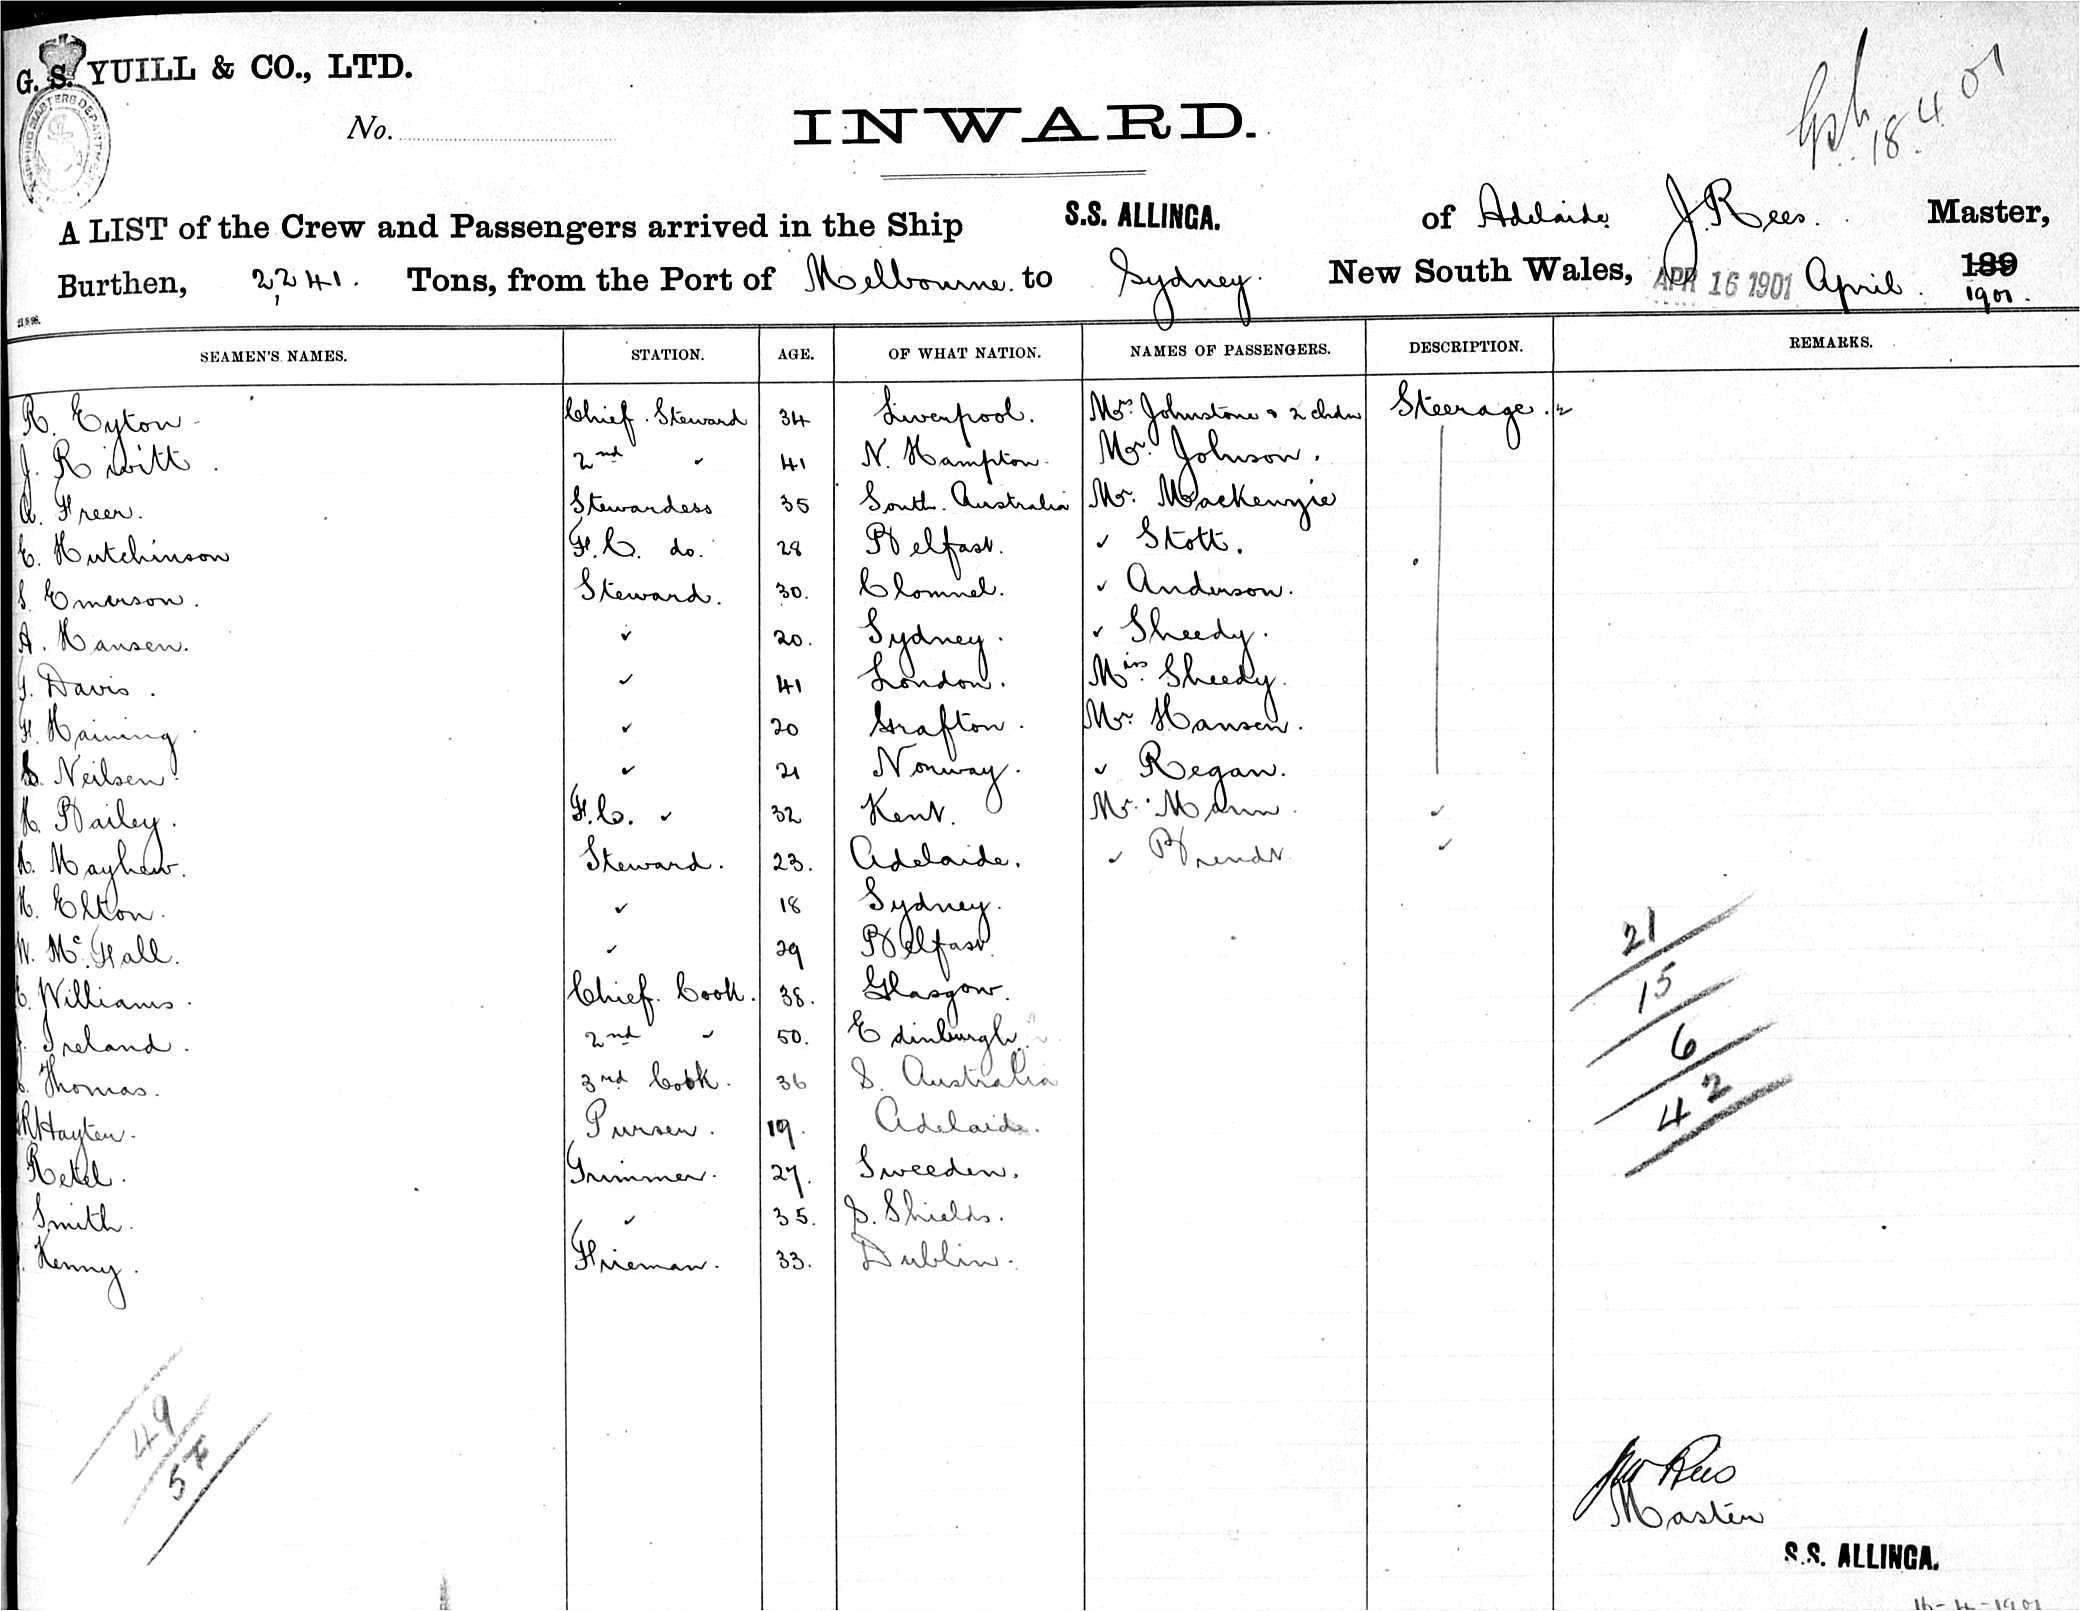 G. S. YUILL & CO., LTD.
SHIPPING MASTERS DEPARTMENT
No.
INWARD.
18.4.01
A LIST of the Crew and Passengers arrived in the Ship S.S. ALLINGA. of Adelaide. J. Rees. Master,
Burthen, 2,241. Tons, from the Port of Melbourne. to Sydney. New South Wales, APR 16 1901 April. 189 1901.
21.9.98.
SEAMEN'S NAMES. STATION. AGE. OF WHAT NATION. NAMES OF PASSENGERS. DESCRIPTION. REMARKS.
R. Eyton Chief. Steward 34 Liverpool. Mrs Johnstone & 2 chdn Steerage. 2
J. Rivitt. 2nd " 41 N. Hampton. Mr. Johnson.
A. Freer. Stewardess 35 South. Australia Mr. Mackenzie
E. Hutchinson F.C. do. 28 Belfast. " Stott.
S. Emerson. Steward. 30. Clomnel. " Anderson.
A. Hansen. " 20. Sydney. " Sheedy.
G. Davis. " 41 London. Miss. Sheedy.
F. Haining. " 20 Grafton. Mr. Hansen.
Neilsen. " 21 Norway. " Regan.
H. Bailey. F.C. " 32 Kent. Mr. Mann. "
H. Mayhew. Steward. 23. Adelaide. " Brendt "
H. Elton. " 18 Sydney.
W. McFall. " 29 Belfast.
C. Williams. Chief. Cook. 38. Glasgow.
J. Ireland. 2nd " 50. Edinburgh.
Thomas. 3rd Cook. 36 S. Australia
R Hayter. Purser. 19. Adelaide.
Retel. Trimmer. 27. Sweeden.
Smith. " 35. S. Shields.
Kenny. Frieman. 33. Dublin.
21
15
6
42
49
57
Jno Rees
Master
S.S. ALLINGA.
16-4-1901